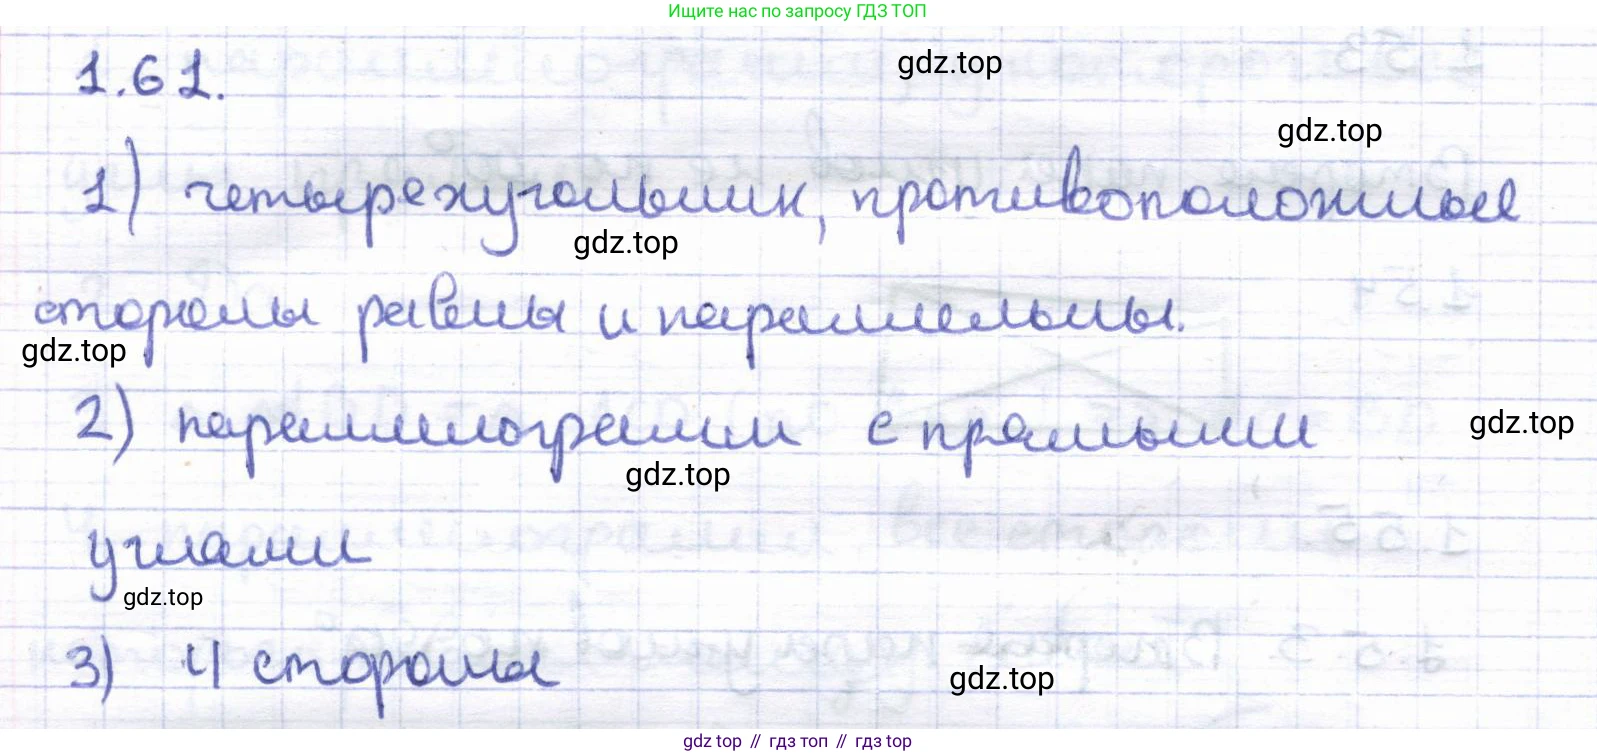 Ищите нас по запросу ГДЗ ТОП
1.61.
gdz.top
gdz.top
1) четырехугольник, противоположные
gdz.top
стороны равны и параллельны.
gdz.top
2) параллелограмм с прямыми
gdz.top
gdz.top
углами
gdz.top
3) 4 стороны
gdz.top
gdz top // гдз топ // gdz top